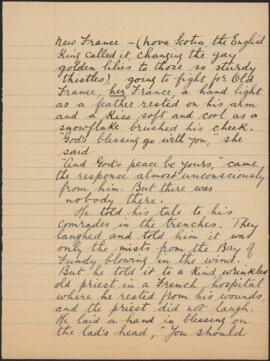 New France – (Nova Scotia the English
King called it, changing the gay
golden lilies to those so sturdy
thistles) going to fight for Old
France, her France, a hand light
as a feather rested on his arm
and a kiss soft and cool as a
snowflake brushed his cheek.
"God's blessing go with you," she
said.
"And God's peace be yours," came
the response almost unconsciously
from him. But there was
nobody there.
He told his tale to his
comrades in the trenches. They
laughed and told him it was
only the mists from the Bay of
Fundy blowing in the wind.
But he told it to a kind, wrinkled
old priest in a French hospital
where he rested from his wounds,
and the priest did not laugh.
He laid a hand in blessing on
the lad's head, "You should